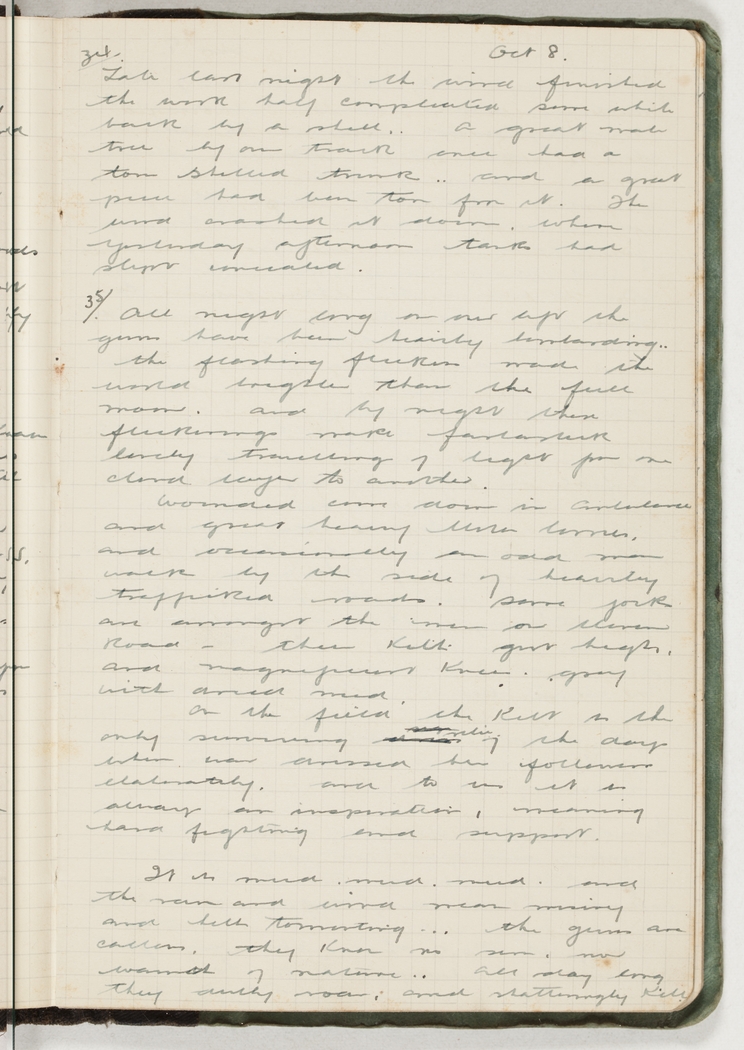 34. Oct 8.
Late last night the wind finished
the work half complicated some while
back by a shell.. A great
tree by our track once had a
torn shelled trunk .. and a great
piece had been torn from it. The
wind crashed it down, where
yesterday afternoon tanks had
slept concealed.
35/. All night long on our left the
guns have been heavily bombarding..
the flashing flickers made the
world brighter than the full
moon. and by night these
flickerings make fantastick
lovely travelling of light from one
cloud layer to another.
Wounded come down in ambulance
and great heavy motor lorries,
and occasionally an odd man
walk by the side of heavily
traffiked roads. Some jocks
are amongst the men on
Road - their Kilts girt high,
and magnificent Knees gray
with dried mud.
On the field the Kilt is the
only surviving relic of the days
when war dressed her followers
elaborately. and to us it is
always an inspiration, meaning
hard fighting and support.
It is mud. mud. mud. and
the rain and wind mean misery
and hell tormenting... the guns are
callous, they know no sun, nor
warmth of nature.. All day long
they dully roar; and shatteringly Kill